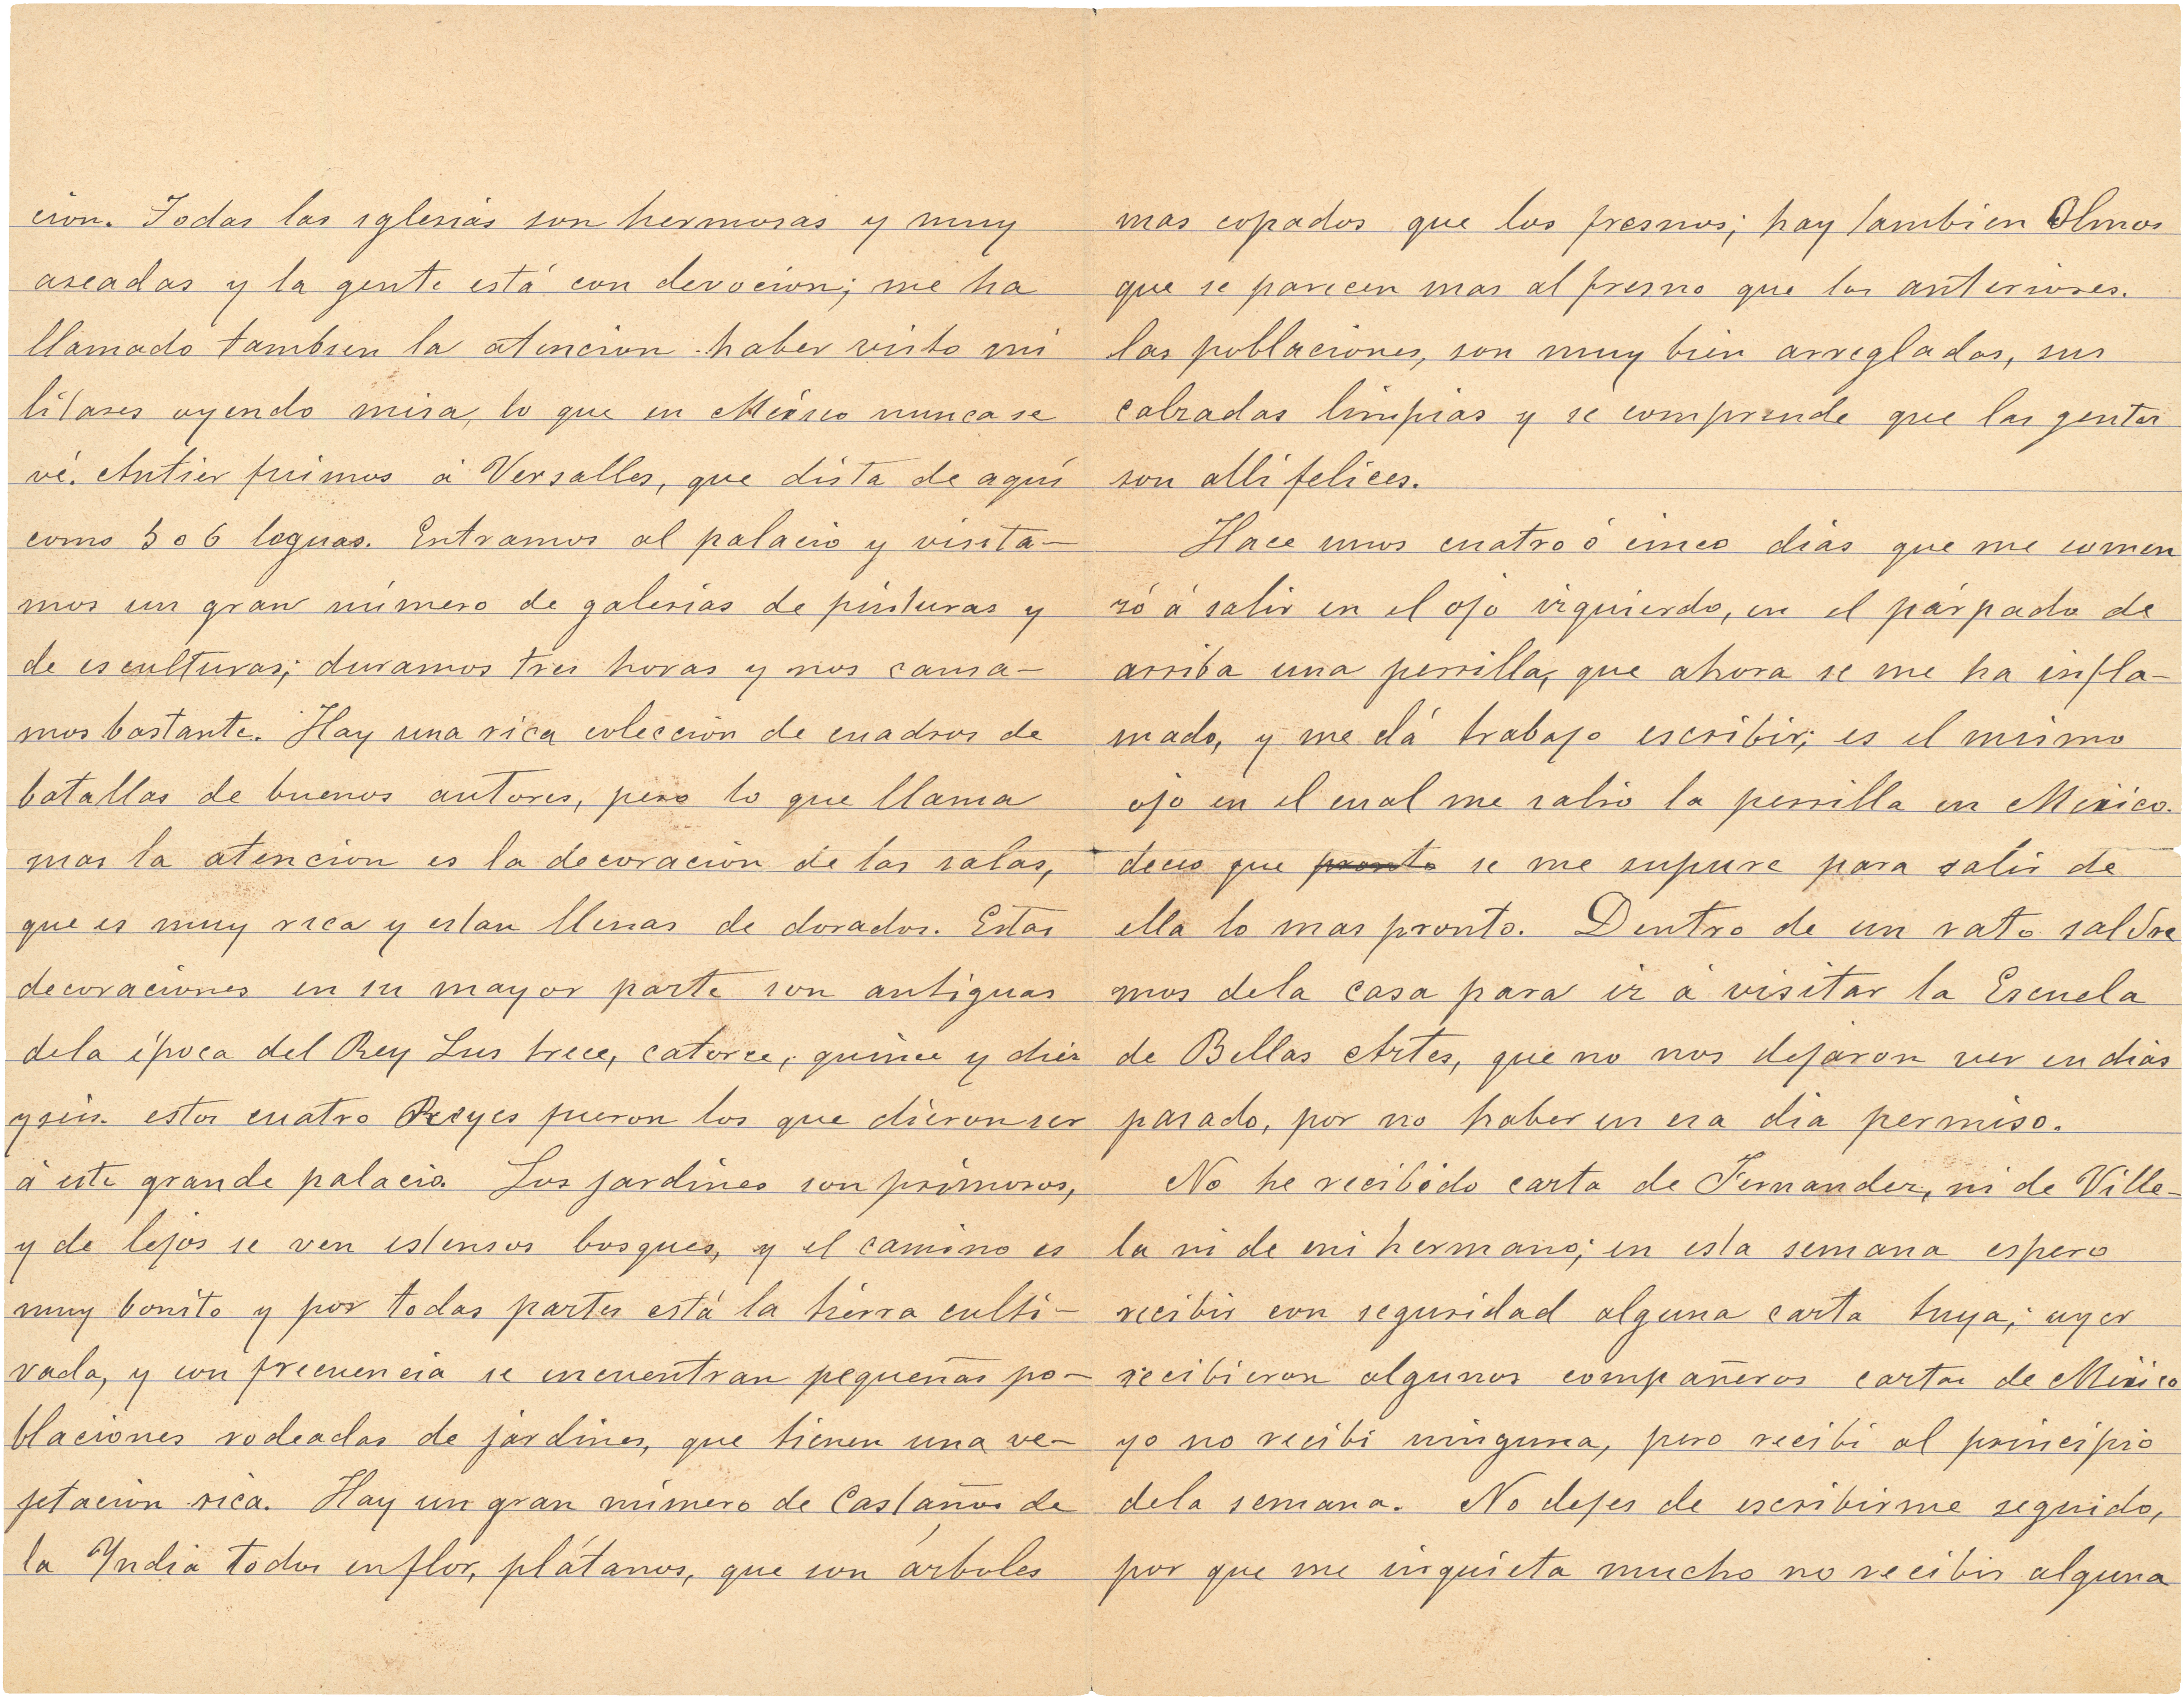 cion. Todas las iglesias son hermosas y muy
aseadas y la gente está con devocion; me ha
llamado tambien la atencion haber visto mi
litares oyendo misa, lo que en México nunca se
vé. Antier fuimos á Versalles, que dista de aquí
como 5 o 6 leguas. Entramos al palacio y visita-
mos un gran número de galerias de pinturas y
de esculturas; duramos tres horas y nos cansa-
mos bastante. Hay una rica colección de cuadros de
batallas de buenos autores, pero lo que llama
mas la atencion es la decoración de las salas,
que es muy rica y estan llenas de dorados. Estas
decoraciones en su mayor parte son antiguas
dela época del Rey Luis trece, catorce, quince y diez
y seis. estos cuatro Reyes fueron los que dieron ser
á este grande palacio. Los jardines son primorosos,
y de lejos se ven estensos bosques, y el camino es
muy bonito y por todas partes está la tierra culti-
vada, y con frecuencia se encuentran pequeñas po-
blaciones rodeadas de jardines, que tienen una ve-
jetacion rica. Hay un gran número de Castaños de
la Yndia todos en flor, plátanos, que son árboles
mas copados que los fresnos; hay tambien Olmos
que se parecen mas al fresno que los anteriores.
las poblaciones, son muy bien arregladas, sus
calzadas limpias y se comprende que las gentes
son alli felices.
Hace unos cuatro ó cinco dias que me comen
zó á salir en el ojo izquierdo, en el párpado de
arriba una perrilla, que ahora se me ha infla-
mado, y me dá trabajo escribir; es el mismo
ojo en el cual me salio la perrilla en México.
deceo que pronto se me supure para salir de
ella lo mas pronto. Dentro de un rato saldre
mos dela casa para ir á visitar la Escuela
de Bellas Artes, que no nos dejaron ver en dias
pasado, por no haber en esa dia permiso.
No he recibido carta de Fernandez, ni de Ville-
la ni de mi hermano; en esta semana espero
recibir con seguridad alguna carta tuya; ayer
recibieron algunos compañeros cartas de México
yo no recibi ninguna, pero recibi al principio
dela semana. No dejes de escribirme seguido,
por que me inquieta mucho no recibir alguna